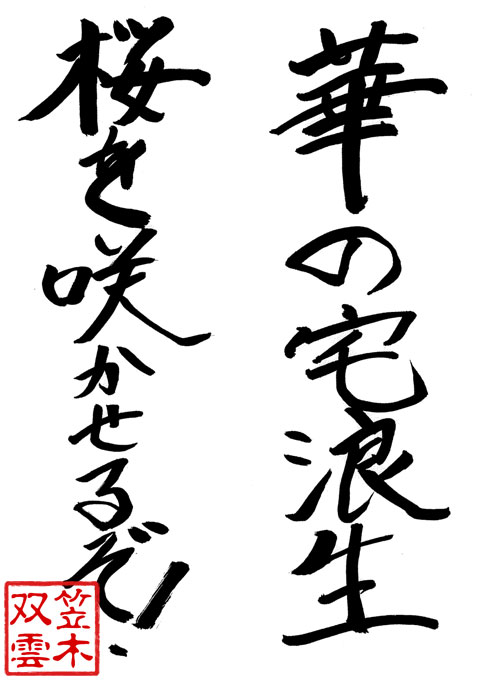 華の宅浪生
桜を咲かせるぞ!
笠木
双雲